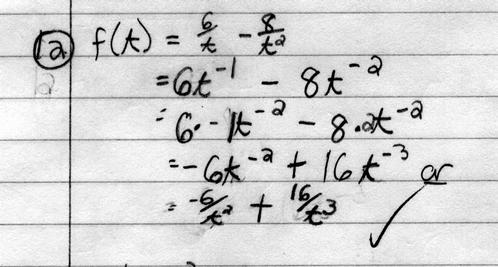 12 f(t) = 6/t - 8/t²
= 6t⁻¹ - 8t⁻²
= 6·-1t⁻² - 8·2t⁻²
= -6t⁻² + 16t⁻³ or
= -6/t² + 16/t³ ✓